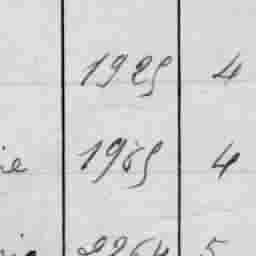 1925 4
ie 1965 4
2264 5